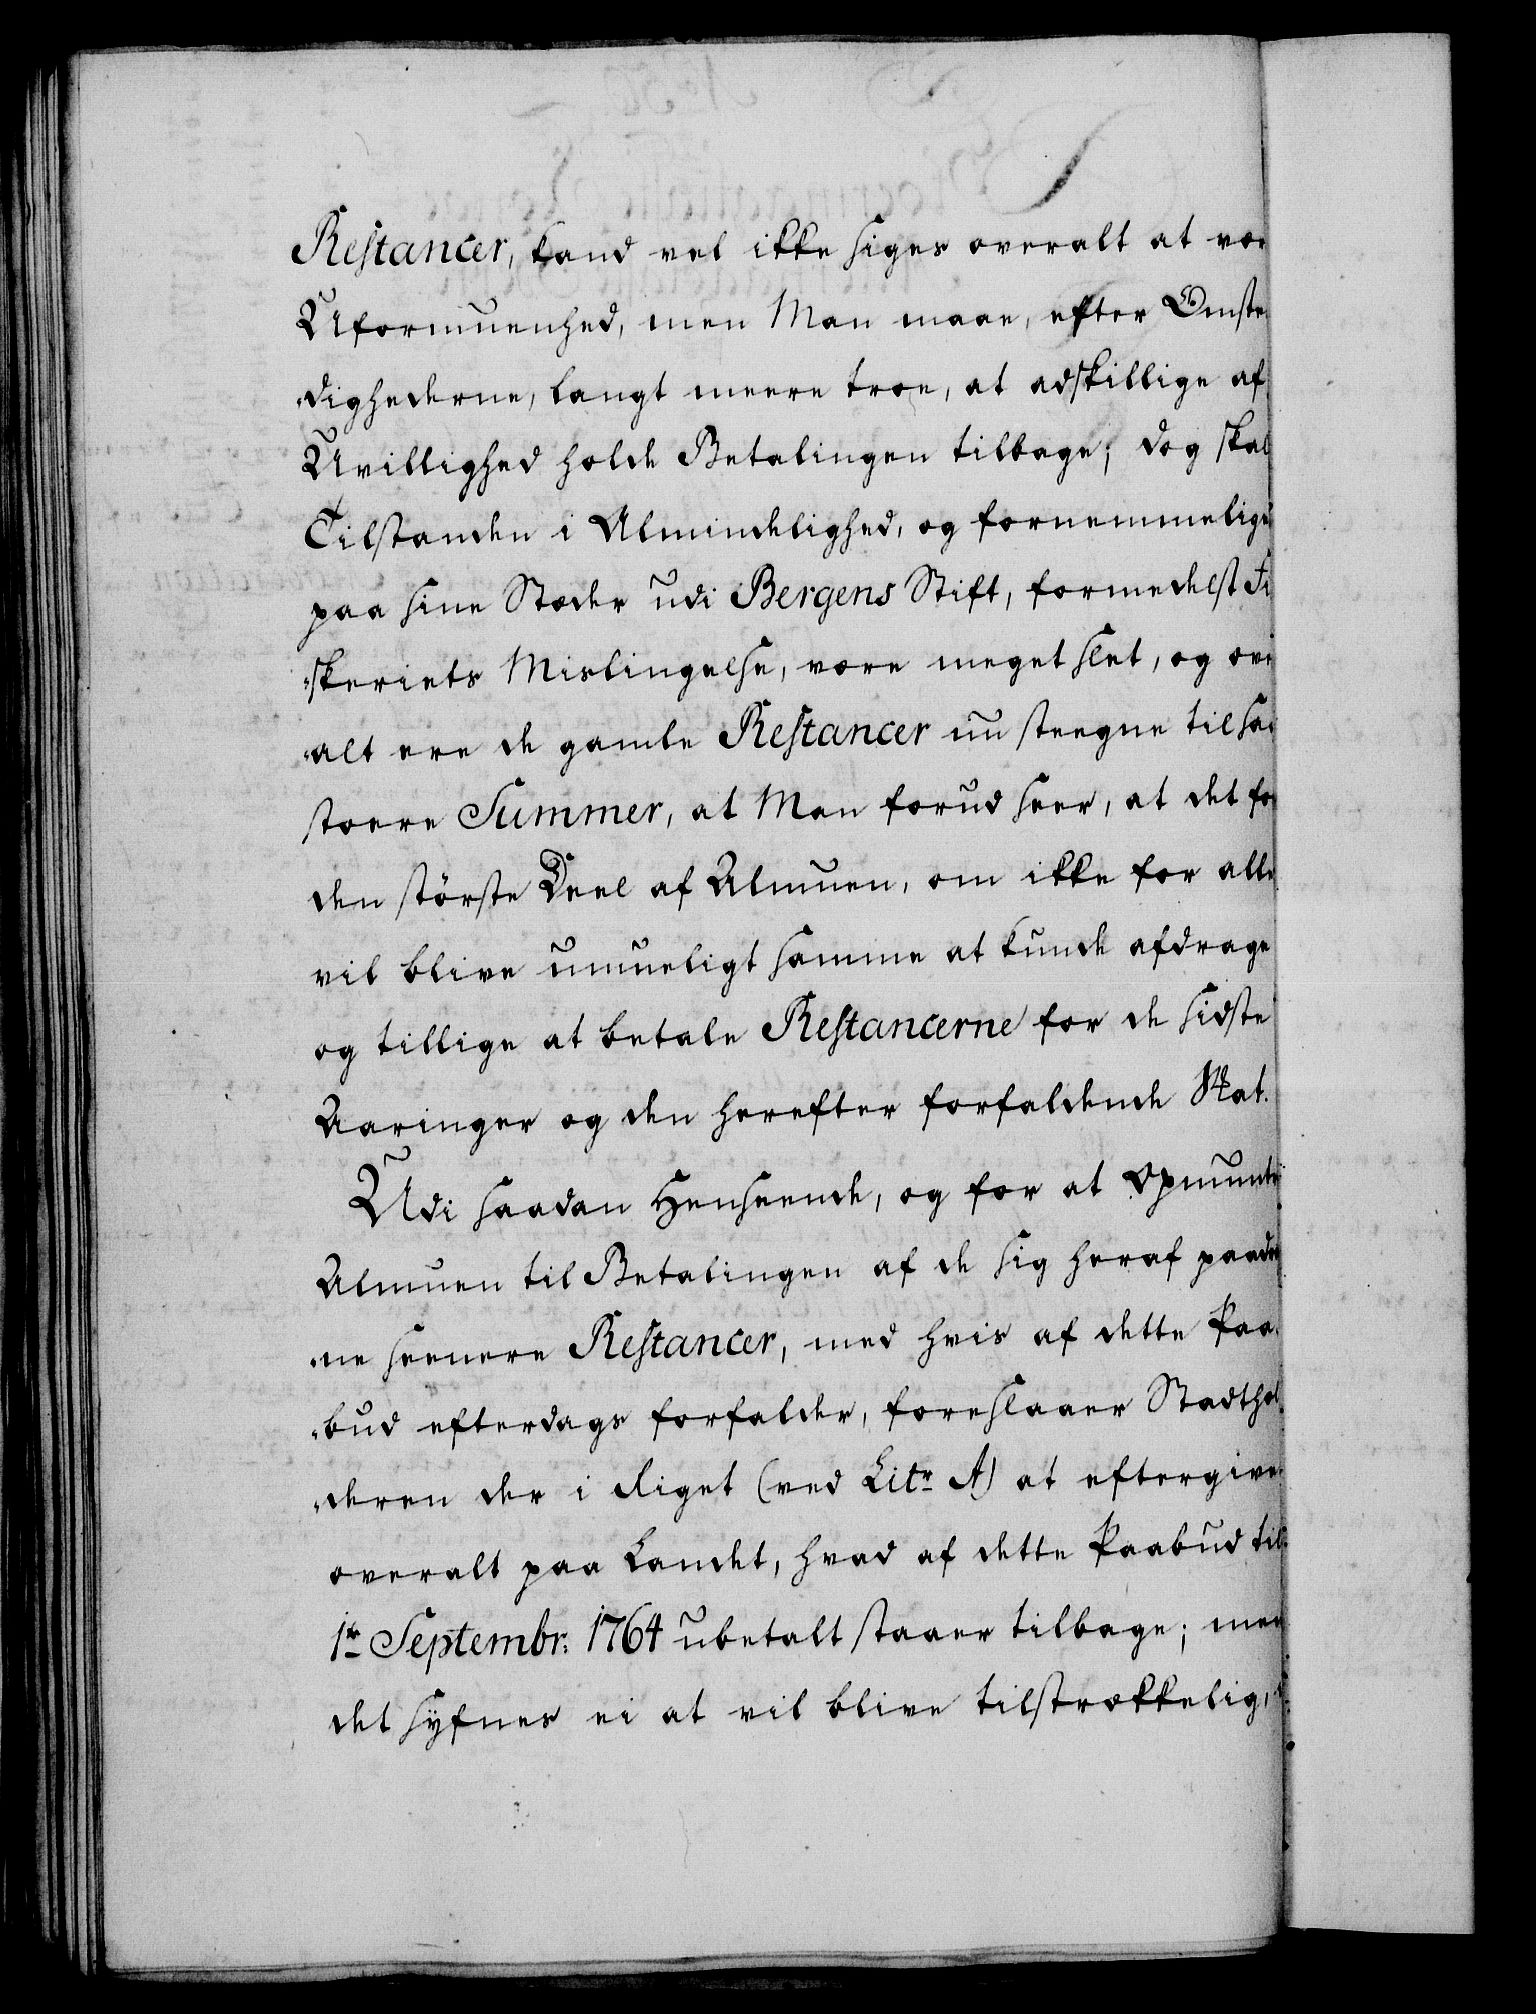 Restancer, kand vel ikke siges overalt at være
Uformuenhed, men Man maae, efter Omstæn
„dighederne, langt meere troe, at adskillige af
Uvillighed holde Betalingen tilbage; dog skal
Tilstanden i Almindelighed, og fornemmelige
paa sine Stæder udi Bergens Stift, formedelst Fi
„skeriets Mislingelse, være meget slet, og over
„alt ere de gamle Restancer nu steegne til saa
stoere Summer, at Man forud seer, at det for
den störste Deel af Almuen, om ikke for alle
vil blive umueligt samme at kunde afdrage
og tillige at betale Restancerne for de sidste
Aaringer og den herefter forfaldende Skat.
Udi saadan Henseende, og for at opmuntre
Almuen til Betalingen af de sig heraf paadra
„ne seenere Restancer, med hvis af dette Paa
„bud efterdags forfalder, foreslaaer Stadthol
„deren der i Riget (ved Litr A) at eftergive
overalt paa Landet, hvad af dette Paabud til
1te Septembr: 1764 ubetalt staaer tilbage; men
det syfnes ei at vil blive tilstrækkelig,